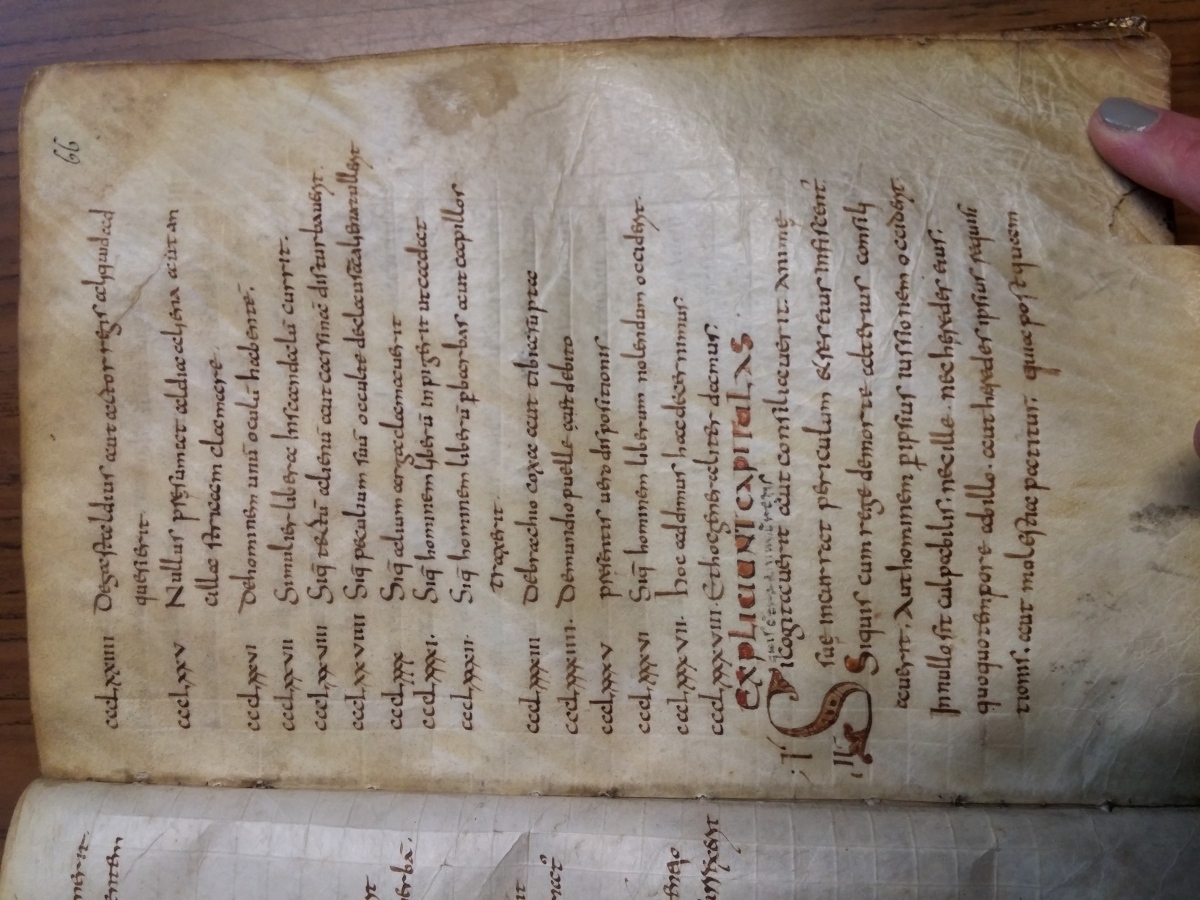 66
cccLxxiiii Degastaldius aut actor regis aliquid ad
quesierit
cccLxxv Nullus presumat aldia aliena aut an
cilla stricam clamare
cccLxxvi De hominem unū oculū habente.
cccLxxvii Simulier libera
currit.
cccLxxviii Siq̄ tectū alienū aut
disturbaverit.
cccLxxviiii Siq̄ peculium suū occulte
tullerit
cccLxxx Siq̄ alium arga clamaverit
cccLxxxi. Siq̄ hominem liberū inpigerit ut cadat
cccLxxxii. Siq̄ hominem liberū p̱ barbas aut capillos
traxerit.
cccLxxxiii De brachio coxa aut tibia rupta
cccLxxxiiii. De mundio puelle aut debito
cccLxxxv presentis uero dispositionis
cccLxxxvi Siq̄ hominem liberum nolendum occiderit.
cccLxxxvii. hoc addimus hac decernimus.
cccLxxxviii. Et hoc generaliter damus.
EXPLICIUNT CAPITULAS
Si cogitaverit aut consiliaverit. Animę
suę incurrat periculum & res eius infiscent̄
Siquis cum rege de morte alterius consili
auerit. Aut hominem p̱ ipsius iussionem occiderit
In nullo sit culpabilis. nec ille. nec heredes eius.
quoquo tempore ab illo. aut heredes ipsius requisi
tionis. aut molestia patitur. quia postquam